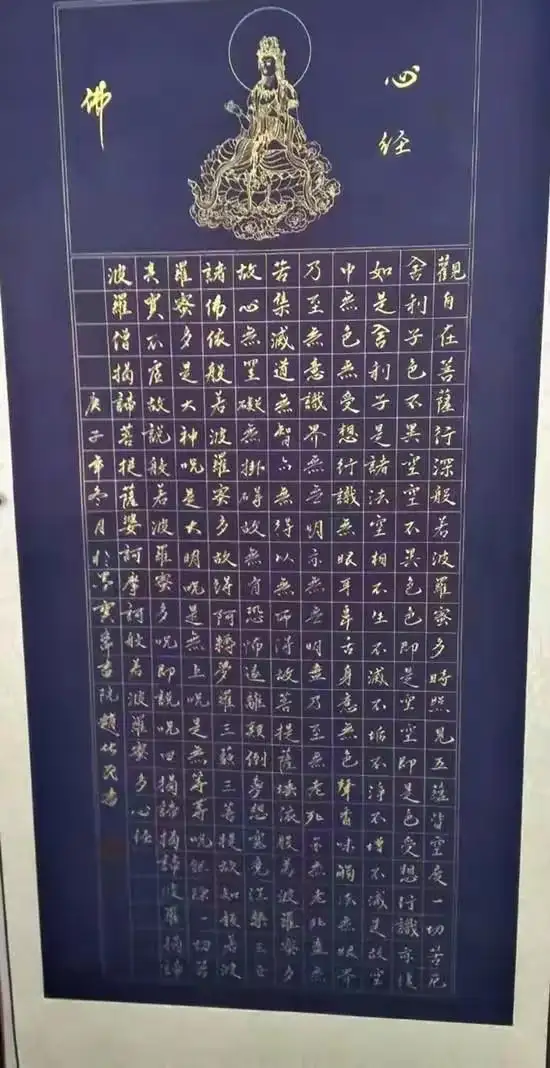 心经
佛
觀自在菩薩行深般若波羅蜜多時照見五蘊皆空度一切苦厄
舍利子色不異空空不異色色即是空空即是色受想行識亦復
如是舍利子是諸法空相不生不滅不垢不淨不增不減是故空
中無色無受想行識無眼耳鼻舌身意無色聲香味觸法無眼界
乃至無意識界無無明亦無無明盡乃至無老死亦無老死盡無
苦集滅道無智亦無得以無所得故菩提薩埵依般若波羅蜜多
故心無罣礙無掛碍故無有恐怖遠離顛倒夢想究竟涅槃三世
諸佛依般若波羅蜜多故得阿耨多羅三藐三菩提故知般若波
羅蜜多是大神呪是大明呪是無上呪是無等等呪能除一切苦
真實不虛故說般若波羅蜜多呪即說呪曰揭諦揭諦波羅揭諦
波羅僧揭諦菩提薩婆訶摩訶般若波羅蜜多心经
庚子年冬月於書院趙書